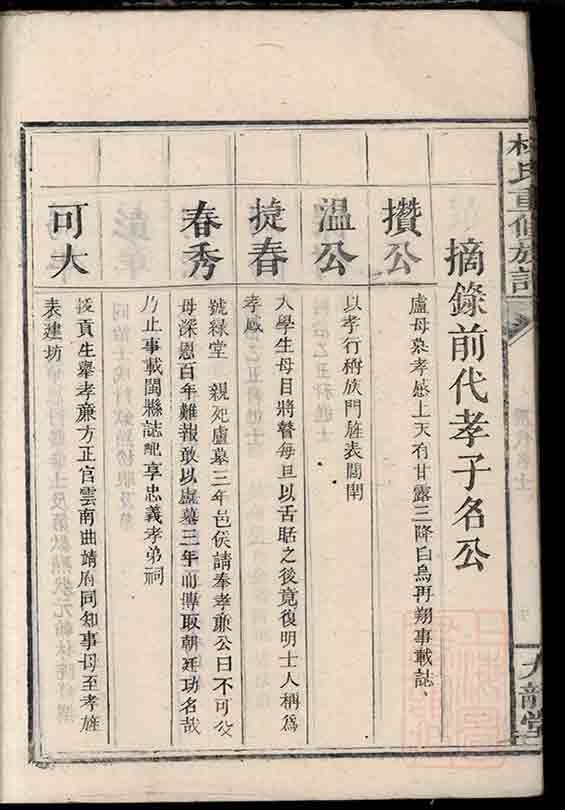 林氏重修族譜
九龍堂
摘錄前代孝子名公
攢公
盧母墓孝感上天有甘露三降白烏再翔事載誌、
溫公
以孝行樹族門旌表閭閈
捷春
入學生母目將瞽每旦以舌舐之後竟復明士人稱為
孝感
春秀
號綠堂 親死盧墓三年邑侯請奉孝亷公曰不可父
母深恩百年難報敢以盧墓三年而傳取朝廷功名哉
乃止事載閩縣誌祀享忠義孝弟祠
可大
拔貢生舉孝亷方正官雲南曲靖府同知事母至孝旌
表建坊